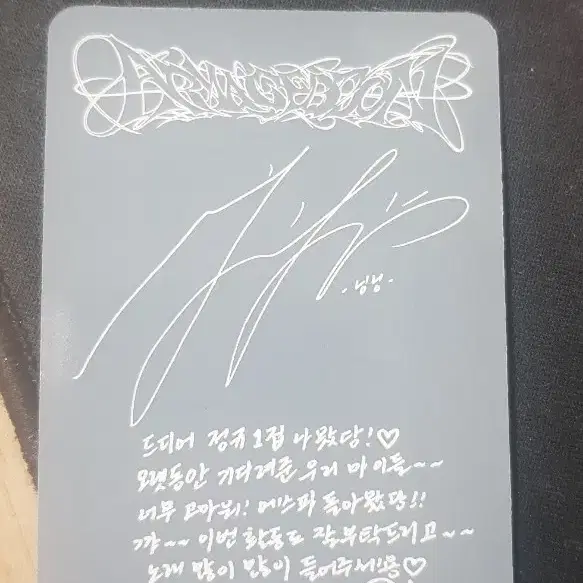 ARMAGEDDON
-닝닝-
드디어 정규 1집 나왔당!♡
오랫동안 기다려준 우리 마이들~~
너무 고마워! 에스파 돌아왔당!!
꺄~~ 이번 활동도 잘부탁드리고~~
노래 많이 많이 들어주세용♡